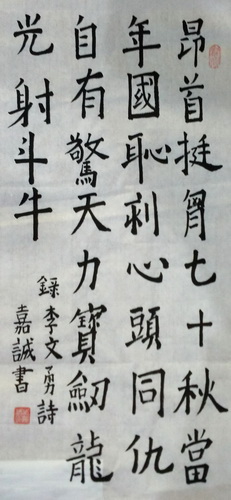 昂首挺胷七十秋當
年國恥刻心頭同仇
自有驚天力寶劒龍
光射斗牛
錄李文勇詩
嘉誠書